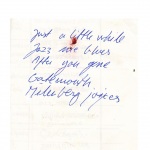 Just a little while
Jazz me blues
After you gone
Gatemouth
Milenberg joyces